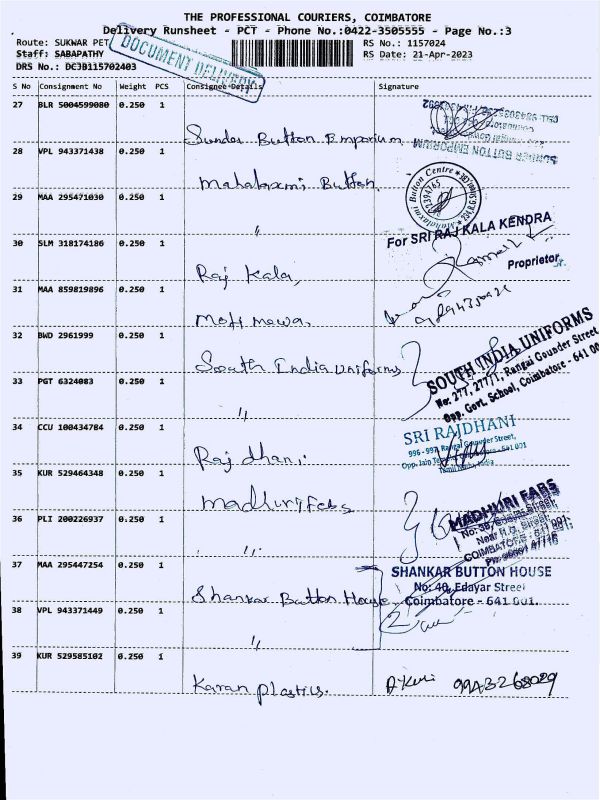 THE PROFESSIONAL COURIERS, COIMBATORE
Delivery Runsheet - PCT - Phone No.:0422-3505555 - Page No.:3
Route: SUKWAR PET
RS No.: 1157024
Staff: SABAPATHY
RS Date: 21-Apr-2023
DRS No.: DCJB115702403
DOCUMENT DELIVERY
S No Consignment No Weight PCS Consignee Details Signature
27 BLR 5004599080 0.250 1
Sunder Button Emporium
SUNDER BUTTON EMPORIUM
28 VPL 943371438 0.250 1
Mahalaxmi Button
Mahalaxmi Button Centre
29 MAA 295471030 0.250 1
"
For SRI RAJ KALA KENDRA
30 SLM 318174186 0.250 1
Raj Kala,
Proprietor
31 MAA 859819896 0.250 1
Moti mewa.
32 BWD 2961999 0.250 1
South India uniforms
SOUTH INDIA UNIFORMS
No: 277, 277/1, Rangai Gounder Street
Opp. Govt. School, Coimbatore - 641 00
33 PGT 6324083 0.250 1
"
34 CCU 100434784 0.250 1
Rajdhani
SRI RAJDHANI
996 - 997, Rangai Gounder Street,
Opp. Jain Coimbatore - 641 001
Tamil Nadu, India
35 KUR 529464348 0.250 1
Madhuri Febs
MADHURI FABS
COIMBATORE - 641 001.
36 PLI 200226937 0.250 1
"
37 MAA 295447254 0.250 1
Shankar Button House
SHANKAR BUTTON HOUSE
No: 40, Edayar Street
Coimbatore - 641 001.
38 VPL 943371449 0.250 1
"
39 KUR 529585102 0.250 1
Karan Plastics.